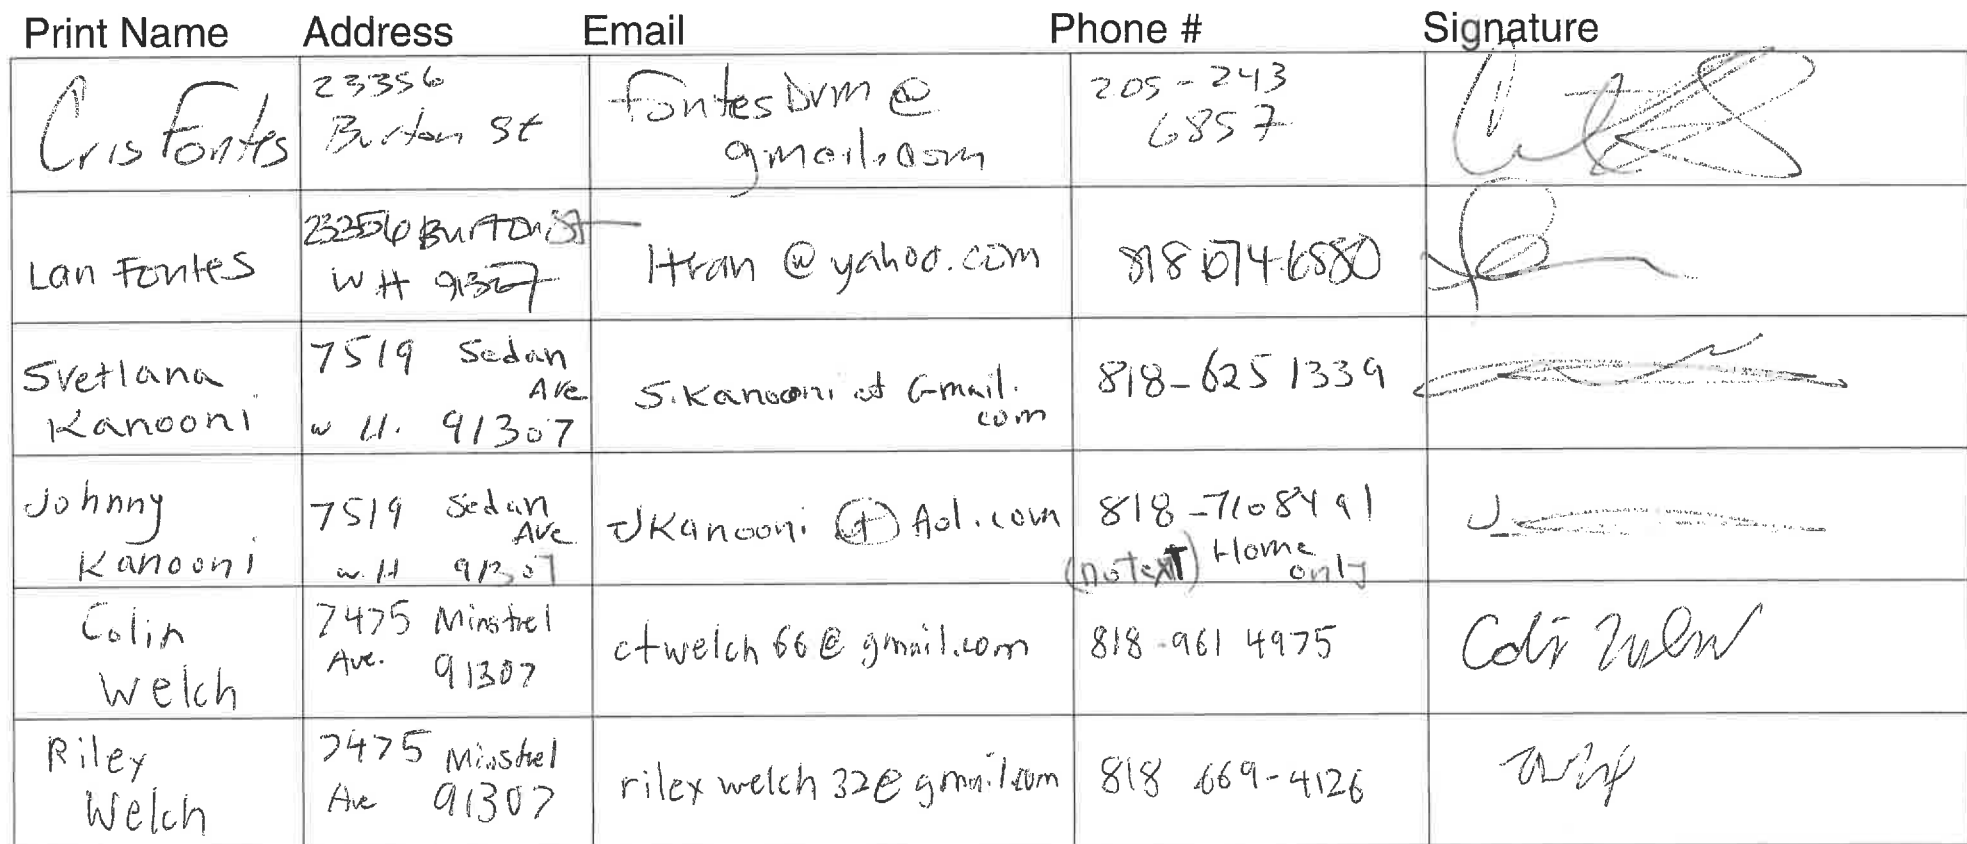 Print Name Address Email Phone # Signature
Cris Fontes 23356 Burton St fontesDvm@ gmail.com 205-243 6857
Lan Fontes 23356 Burton St W H 91307 ltran@yahoo.com 818 674-6880
Svetlana Kanooni 7519 Sedan Ave w H. 91307 S.Kanooni at G-mail. com 818-625 1339
Johnny Kanooni 7519 Sedan Ave w. H 91307 JKanooni @ Aol.com 818-7108491 (no text) Home only
Colin Welch 7475 Minstrel Ave. 91307 ctwelch66@gmail.com 818-961 4975
Riley Welch 7475 Minstrel Ave 91307 rileywelch32@gmail.com 818 669-4126